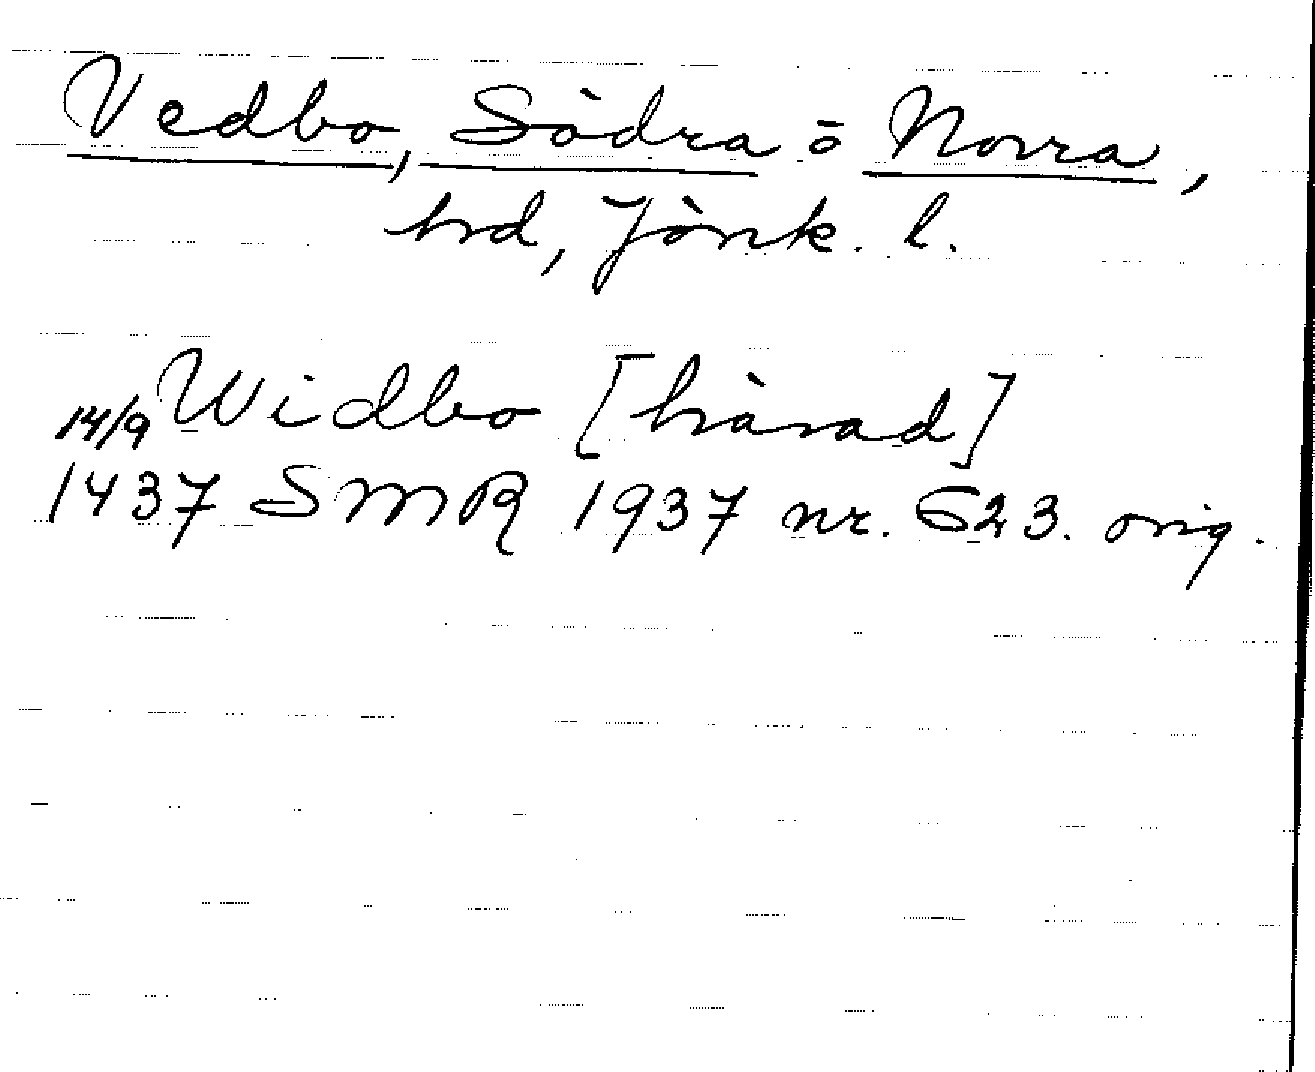 Vedbo, Södra o Norra,
hrd, Jönk. l.
Widbo [härad]
14/9 1437 SMR 1937 nr. 623. orig.